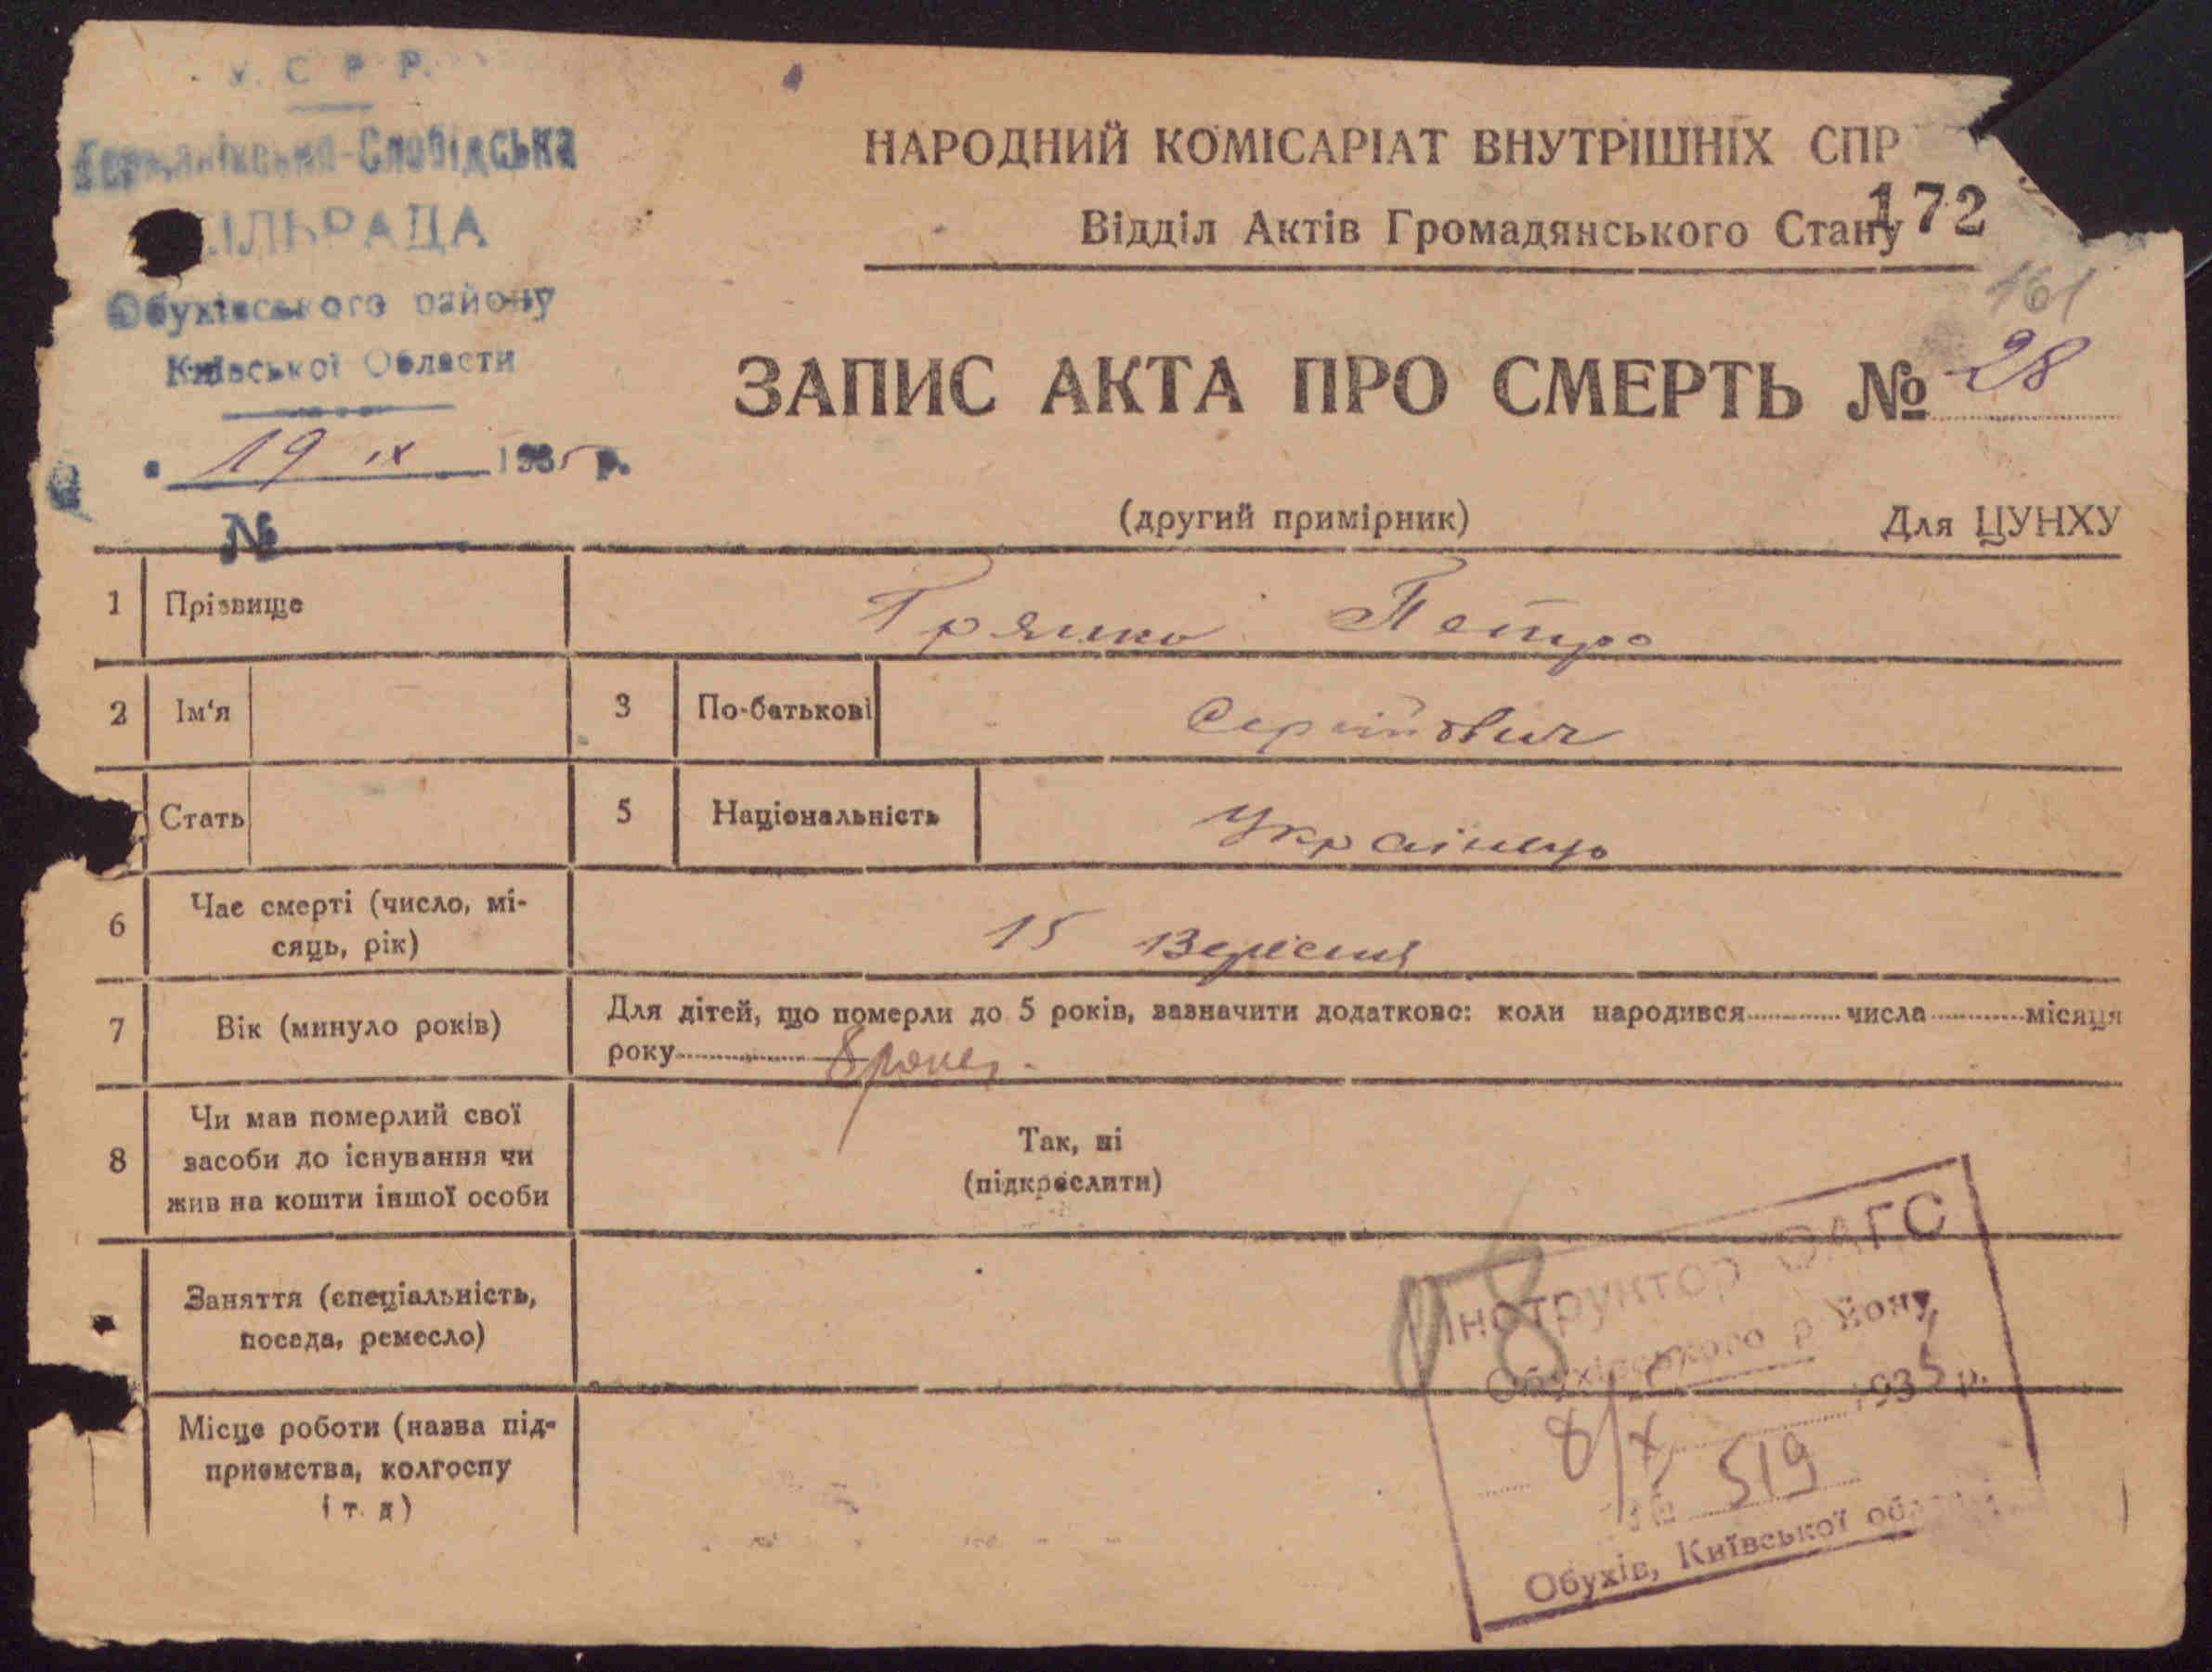 У. С. Р. Р.
Слобідська
СІЛЬРАДА
Обухівського району
Київської Области
19 ІХ 1935 р.
№
НАРОДНИЙ КОМІСАРІАТ ВНУТРІШНІХ СПР
Відділ Актів Громадянського Стану
172
161
ЗАПИС АКТА ПРО СМЕРТЬ № 28
(другий примірник)
Для ЦУНХУ
1 Прізвище Петро
2 Ім'я 3 По-батькові Сергійович
Стать 5 Національність Українець
6 Час смерті (число, мі-
сяць, рік) 15 Вересня
7 Вік (минуло років) Для дітей, що померли до 5 років, зазначити додатково: коли народився числа місяця
року 8
8 Чи мав померлий свої
засоби до існування чи
жив на кошти іншої особи
Так, ні
(підкреслити)
Заняття (спеціальність,
посада, ремесло)
Місце роботи (назва під-
приємства, колгоспу
і т. д)
Інструктор ОАГС
Обухівського району
8/X 1935 р.
№ 519
Обухів, Київської